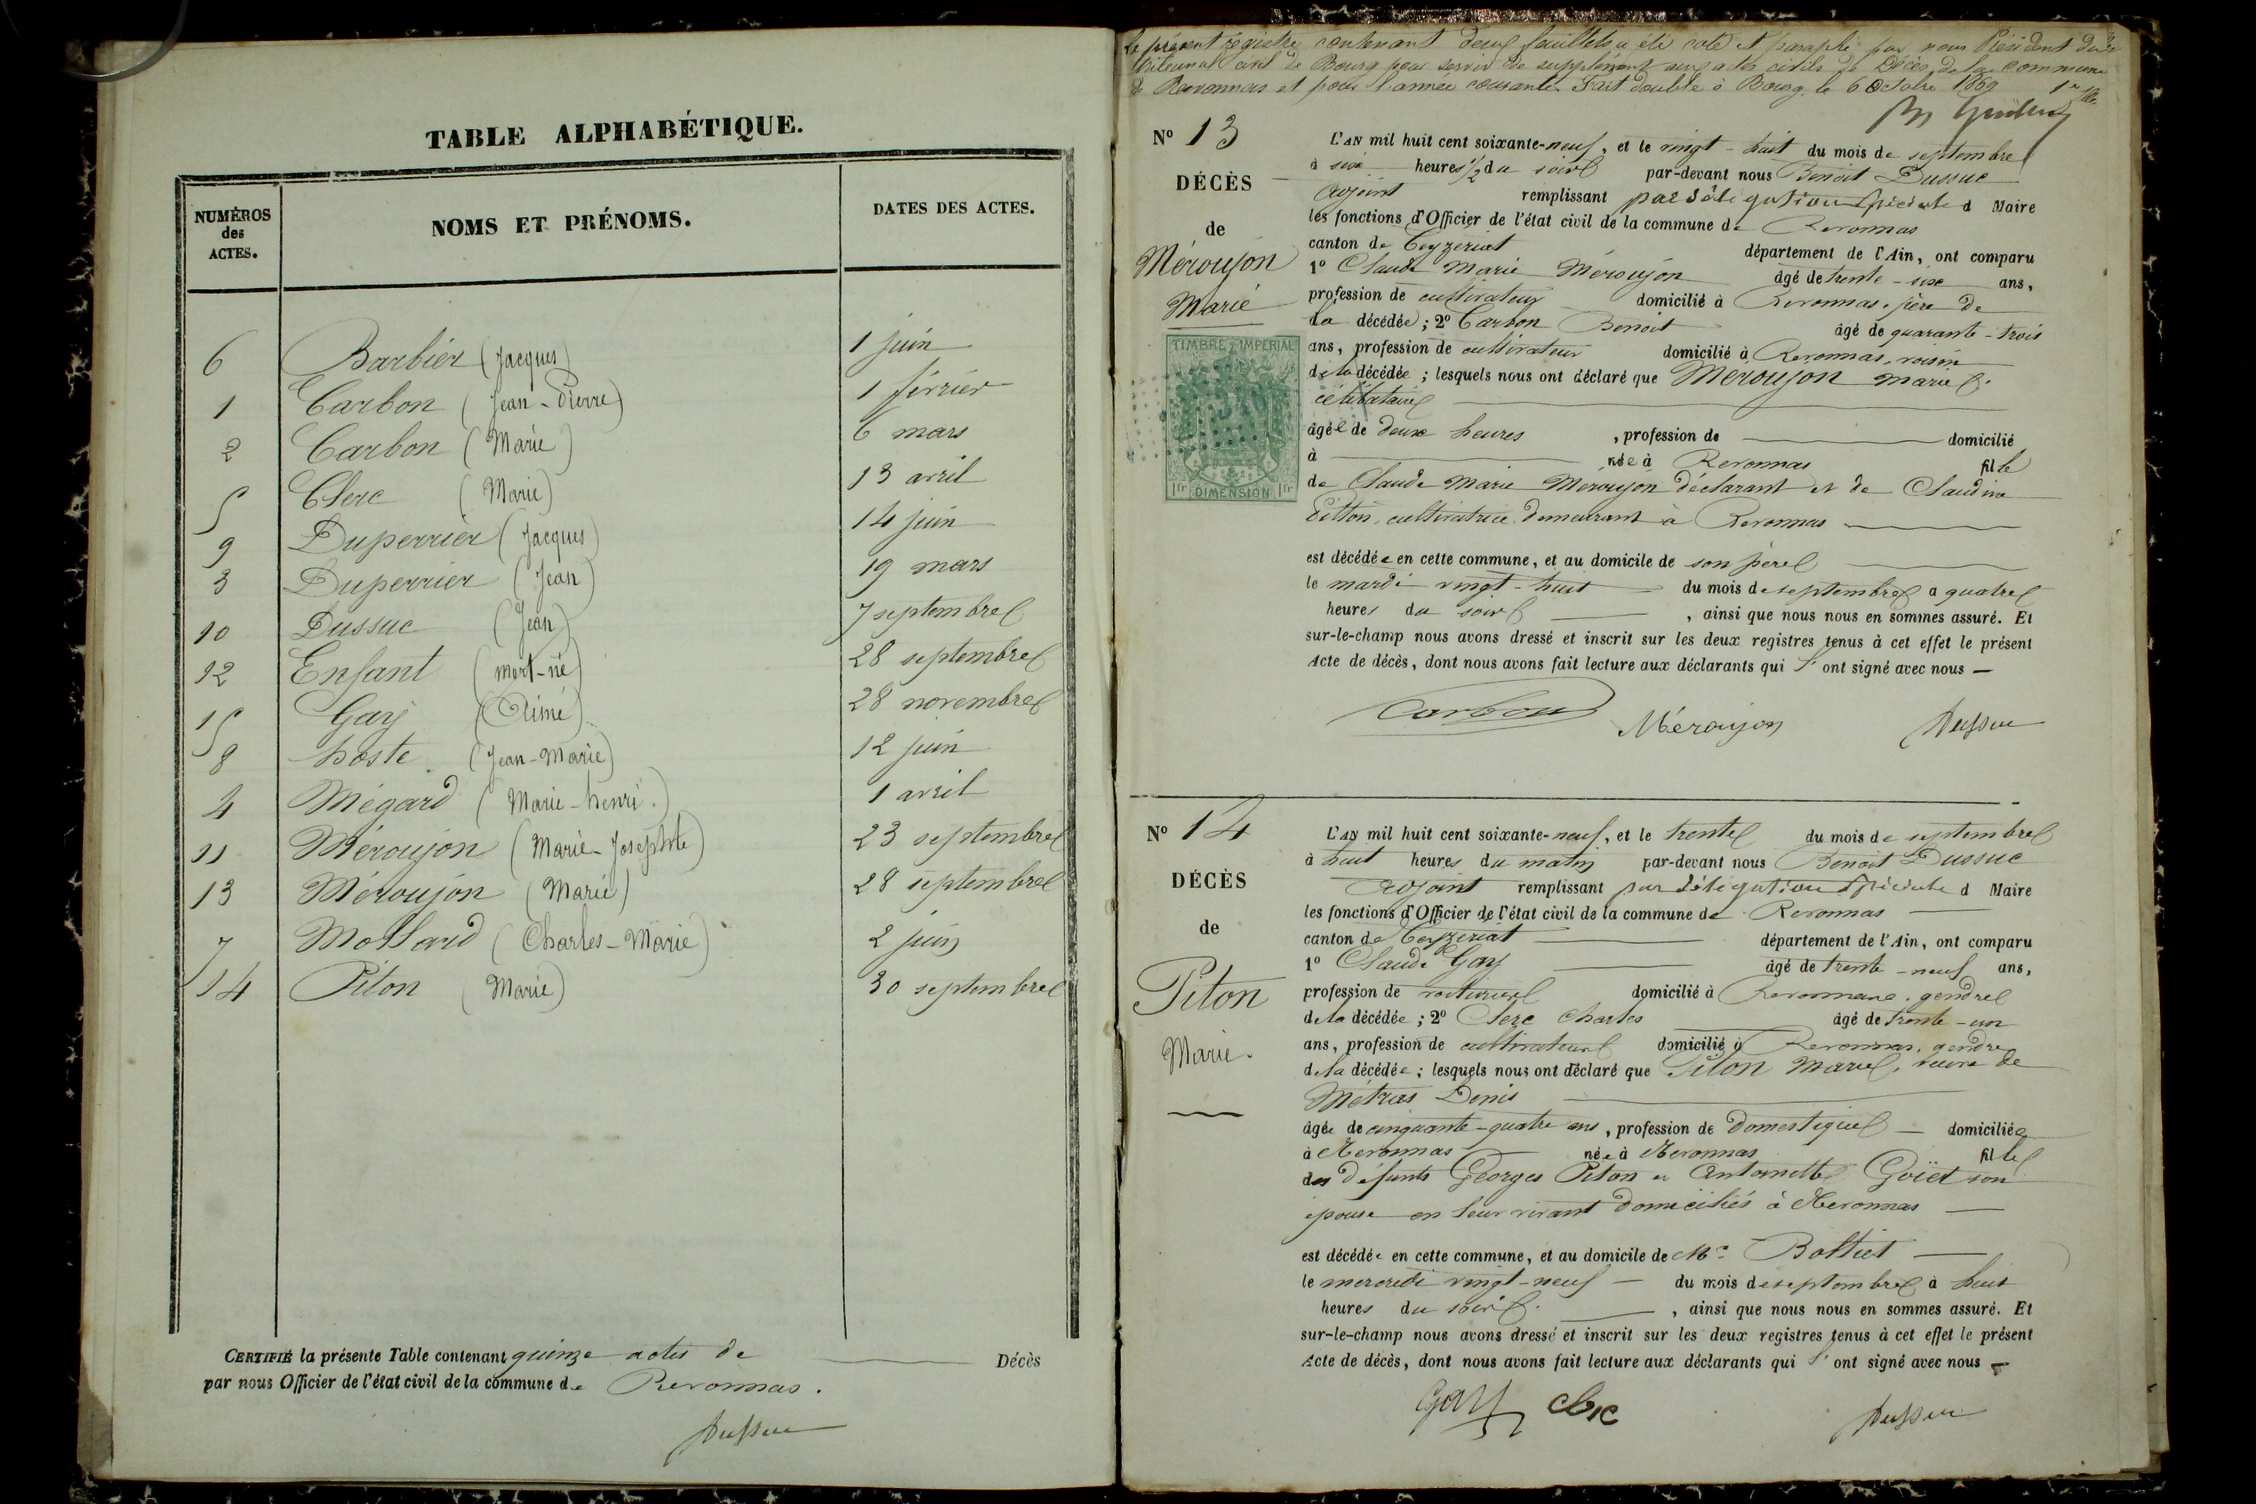 TABLE ALPHABÉTIQUE.
NUMÉROS des ACTES.
NOMS ET PRÉNOMS.
DATES DES ACTES.
6 Barbier (Jacques) 1 juin
1 Carbon (Jean-Pierre) 1 février
2 Carbon (Marie) 6 mars
5 Clerc (Marie) 13 avril
9 Duperrier (Jacques) 14 juin
3 Duperrier (Jean) 19 mars
10 Dussuc (Jean) 7 septembre
12 Enfant (mort-né) 28 septembre
15 Gay (Aimé) 28 novembre
8 hoste (Jean-Marie) 12 juin
4 Mégard (Marie-henri.) 1 avril
11 Méroujon (Marie-Josephte) 23 septembre
13 Méroujon (Marie) 28 septembre
7 Mollard (Charles-Marie) 2 juin
14 Piton (Marie) 30 septembre
CERTIFIÉ la présente Table contenant quinze actes de Décès
par nous Officier de l'état civil de la commune de Revonnas.
Dussuc
Le présent registre contenant deux feuillets a été coté et paraphé par nous Président du
Tribunal civil de Bourg pour servir de supplément aux actes civils de Décès de la commune
de Revonnas et pour l'année courante. Fait double à Bourg le 6 Octobre 1869
Nº 13
DÉCÈS
de
Méroujon
Marie
TIMBRE IMPÉRIAL
1 fr DIMENSION 1 fr
L'AN mil huit cent soixante-neuf, et le vingt-huit du mois de septembre
à six heures 1/2 du soir par-devant nous Benoit Dussuc
adjoint remplissant par délégation spéciale d Maire
les fonctions d'Officier de l'état civil de la commune de Revonnas
canton de Ceyzériat département de l'Ain, ont comparu
1º Claude Marie Méroujon âgé de trente-six ans,
profession de cultivateur domicilié à Revonnas, père de
la décédée; 2º Carbon Benoit âgé de quarante-trois
ans, profession de cultivateur domicilié à Revonnas, voisin
de la décédée; lesquels nous ont déclaré que Méroujon Marie
célibataire
âgée de deux heures, profession de domicilié
à née à Revonnas fille
de Claude Marie Méroujon déclarant et de Claudine
Pitton, cultivatrice demeurant à Revonnas
est décédée en cette commune, et au domicile de son père
le mardi vingt-huit du mois de septembre a quatre
heures du soir, ainsi que nous nous en sommes assuré. Et
sur-le-champ nous avons dressé et inscrit sur les deux registres tenus à cet effet le présent
Acte de décès, dont nous avons fait lecture aux déclarants qui l'ont signé avec nous —
Carbon Méroujon Dussuc
Nº 14
DÉCÈS
de
Piton
Marie.
L'AN mil huit cent soixante-neuf, et le trente du mois de septembre
à huit heures du matin par-devant nous Benoit Dussuc
adjoint remplissant par délégation spéciale d Maire
les fonctions d'Officier de l'état civil de la commune de Revonnas
canton de Ceyzériat département de l'Ain, ont comparu
1º Claude Gay âgé de trente-neuf ans,
profession de voiturier domicilié à Revonnas, gendre
de la décédée; 2º Clerc Charles âgé de trente-un
ans, profession de cultivateur domicilié à Revonnas, gendre
de la décédée; lesquels nous ont déclaré que Piton Marie, veuve de
Métras Denis
âgée de cinquante-quatre ans, profession de domestique domiciliée
à Revonnas née à Revonnas fille
des défunts Georges Piton et Antoinette Goiet son
épouse en leur vivant domiciliés à Revonnas
est décédée en cette commune, et au domicile de Mr Bottiet
le mercredi vingt-neuf du mois de septembre à huit
heures du soir, ainsi que nous nous en sommes assuré. Et
sur-le-champ nous avons dressé et inscrit sur les deux registres tenus à cet effet le présent
Acte de décès, dont nous avons fait lecture aux déclarants qui l'ont signé avec nous —
Gay Clerc Dussuc